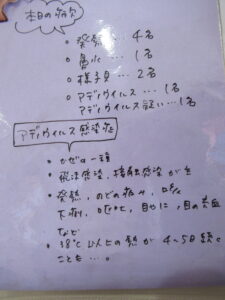 本日の病欠
○ 発熱 … 4名
○ 鼻水 … 1名
○ 様子見 … 2名
○ アデノウイルス … 1名
アデノウイルス疑い … 1名
アデノウイルス感染症
・かぜの一種
・飛沫感染、接触感染
・発熱、のどの痛み、咳
下痢、嘔吐、目やに、目の充血
など
・38℃以上の熱が4~5日続く
ことも…。